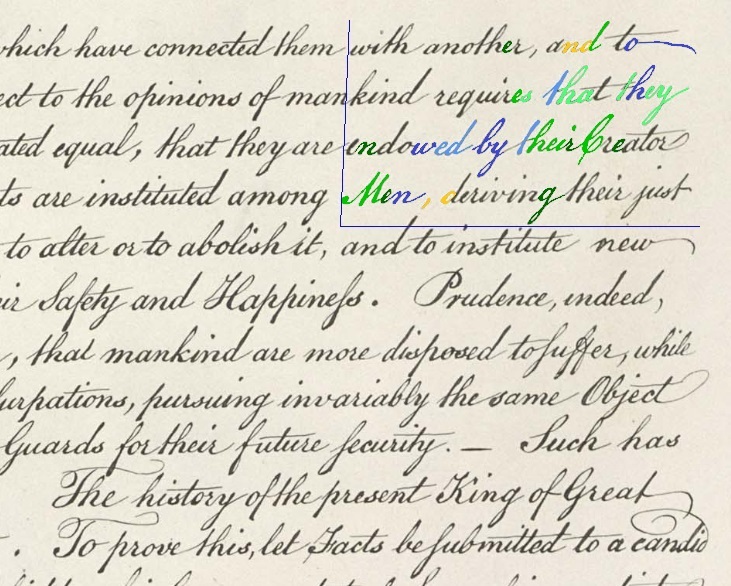 which have connected them with another, and to
ect to the opinions of mankind requires that they
ated equal, that they are endowed by their Creator
ts are instituted among Men, deriving their just
to alter or to abolish it, and to institute new
eir Safety and Happineſs. Prudence, indeed,
, that mankind are more disposed to ſuffer, while
ſurpations, pursuing invariably the same Object
Guards for their future ſecurity. — Such has
The history of the present King of Great
. To prove this, let Facts be ſubmitted to a candid